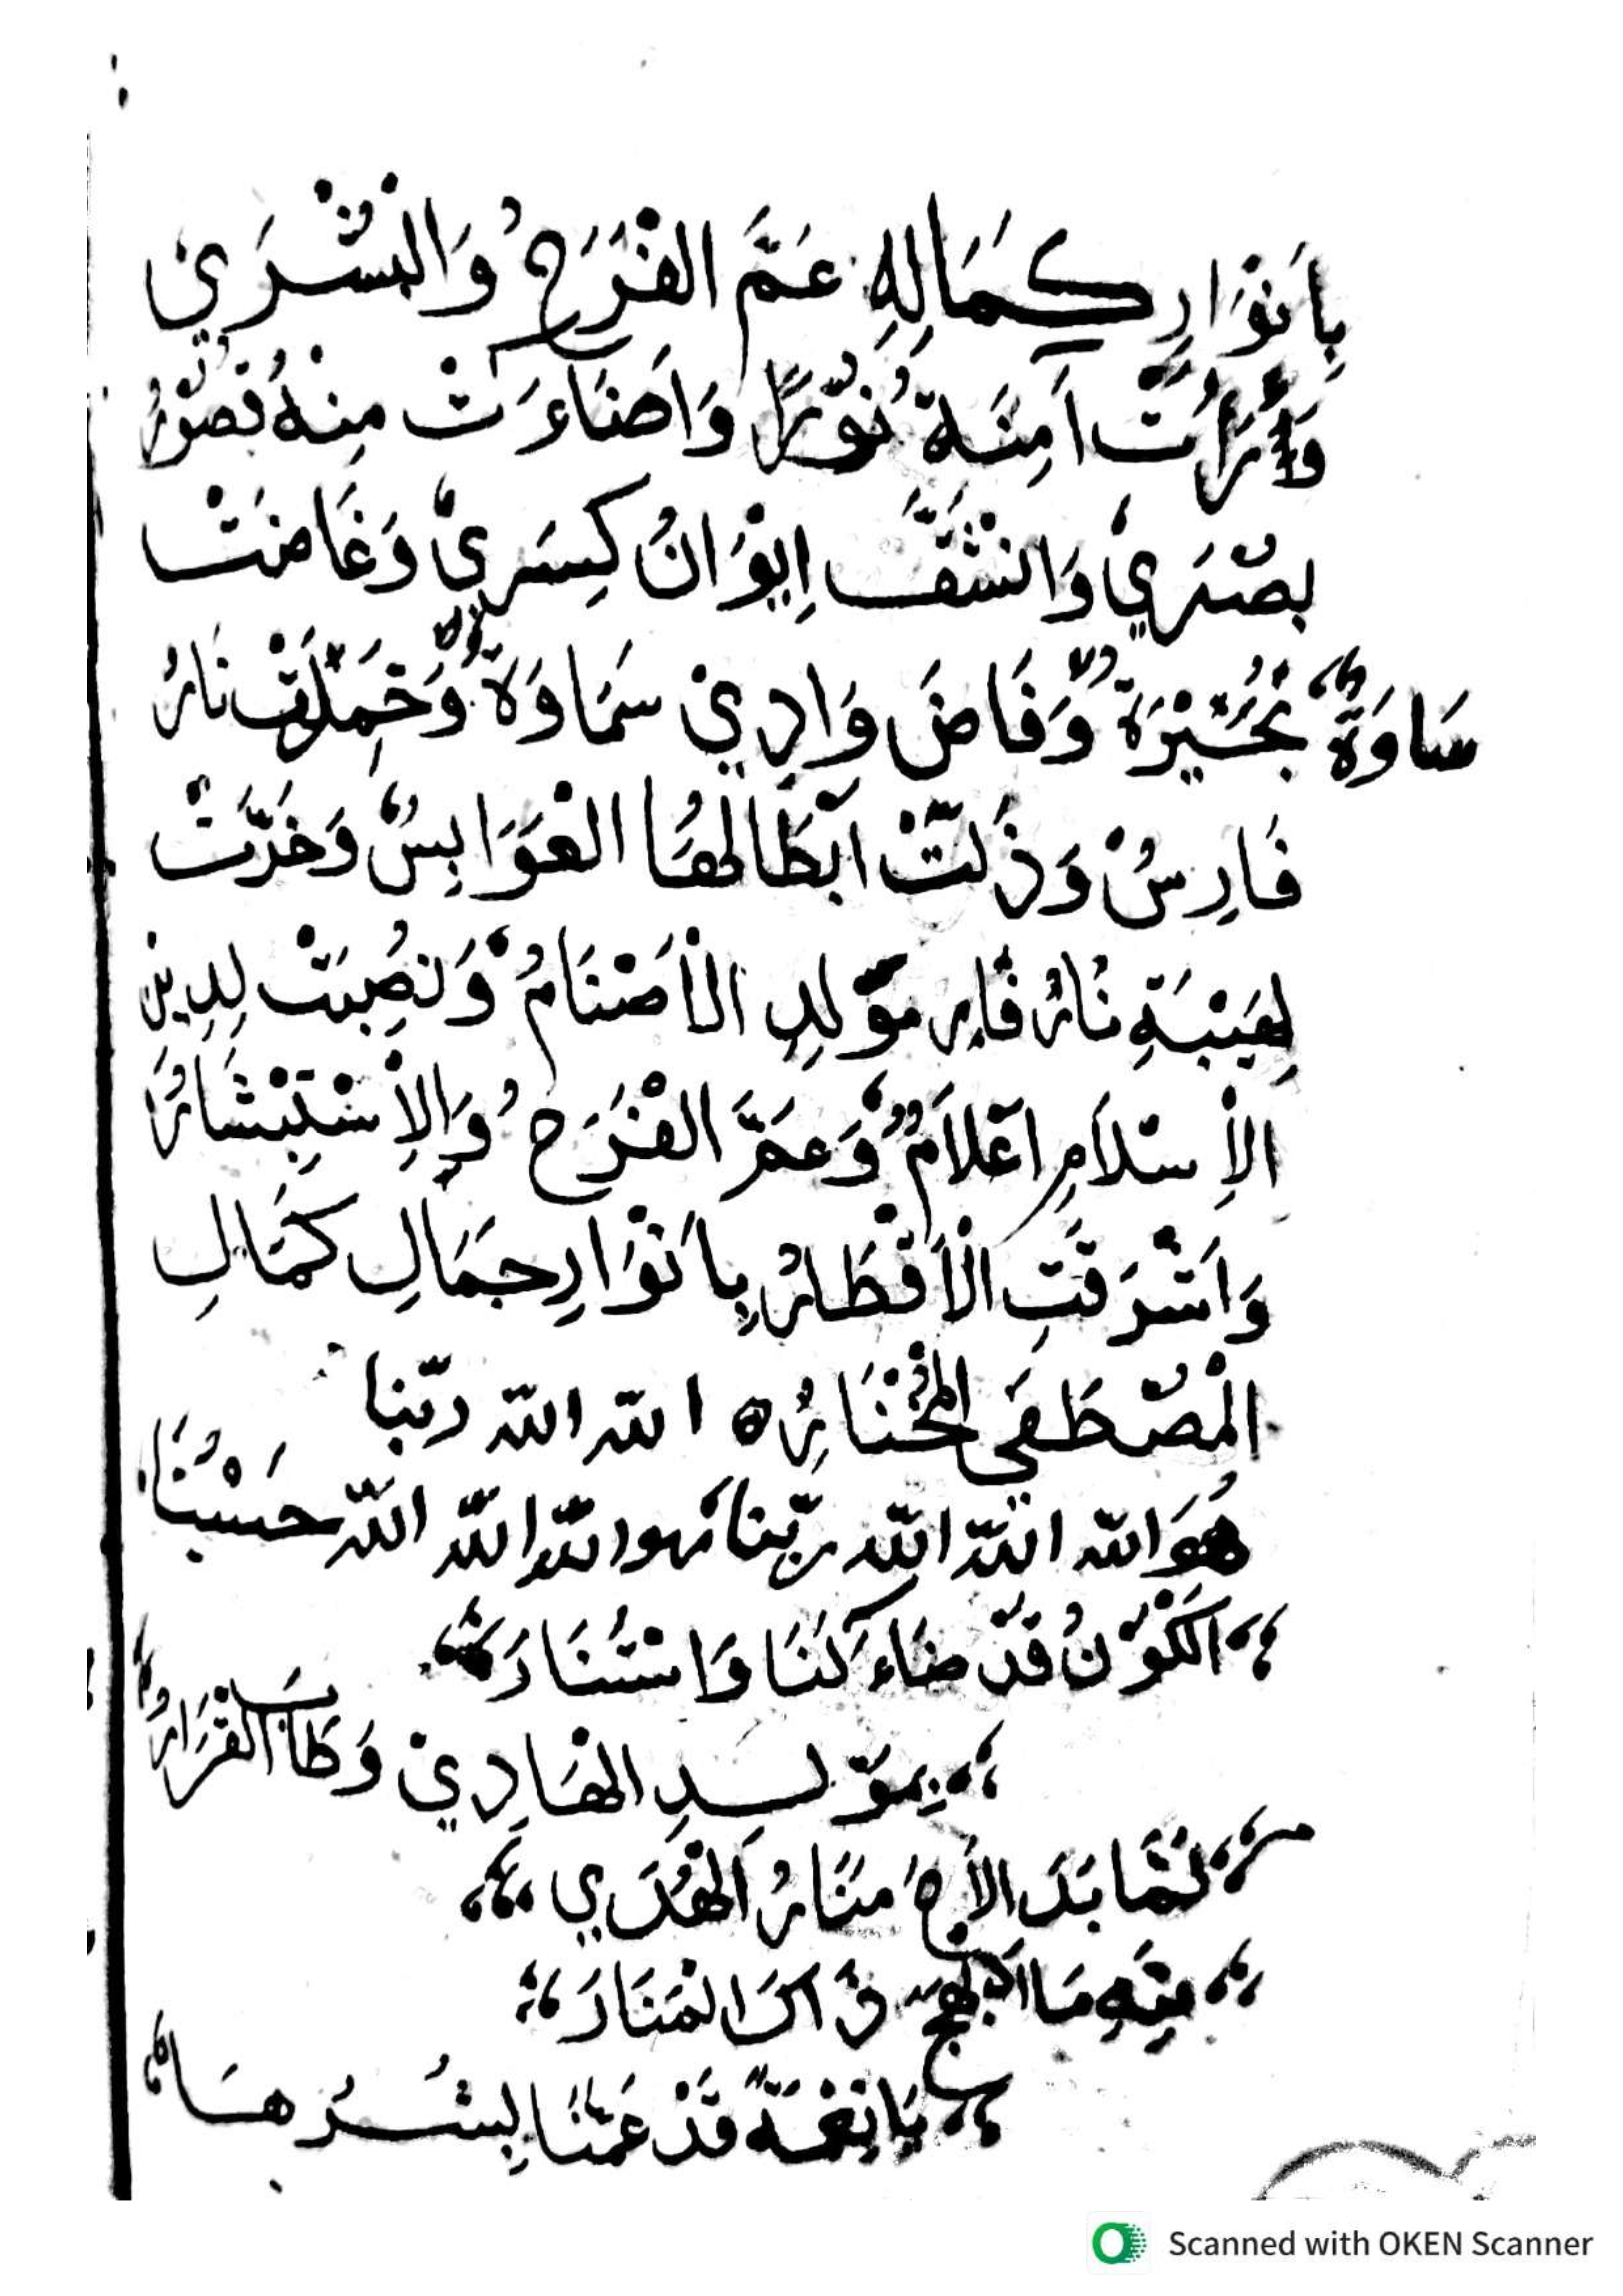 بِاَنْوَارِ كِمَالِهِ عَمَّ الفْرَحُ وَالْبُشْرَي
وَرَأَتْ اَمِنَة نُوْرًا وَاَضَاءَتْ مِنْهُ قُصُوْرُ
بصْرَيْ وَانْشَقَّ اِيْوَانُ كِسَرِيْ وَغَاضَتْ
سَاوَةٌ بُحَيْرَةٌ وَفَاضَ وَادِيْ سَمَاوَةٌ وَخَمِدَتْ نَارُ
فَارِسُ وَذَلَّتْ اَبْطَالُهَا الْعَوَابِسُ وَخَرَّتْ
لِهَيْبَةِ مَوْلِدِ الْاَصْنَامُ وَنُصِبَتْ لِدِيْنِ
الْاِسْلَامِ اَعْلَامٌ وَعَمَّ الفْرَحُ وَالْاِسْتِبْشَارُ
وَاَشْرَقَتِ الْاَقْطَارُ بِاَنْوَارِ جَمَالِ كَمَالِ
الْمُصْطَفَي الْمُخْتَارُ ه الله الله ربّنا
هُوَ الله الله الله ربّنا هو الله الله الله حَسْبُنَا
الْكَوْنُ قَدْ ضَاءَ لَنَا وَاسْتَنَارَ
بِمَوْلِدِ الْهَادِيْ وَطَابَ الْقَرَارُ
لَمَّا بَدَا لَاحَ مَنَارُ الْهُدَي
مِنْهِ مَا اَبْهَجَ ذَاكَ الْمَنَارَ
يَا نِعْمَةً قَدْ عَمَّنَا بِشْرُهَا
Scanned with OKEN Scanner